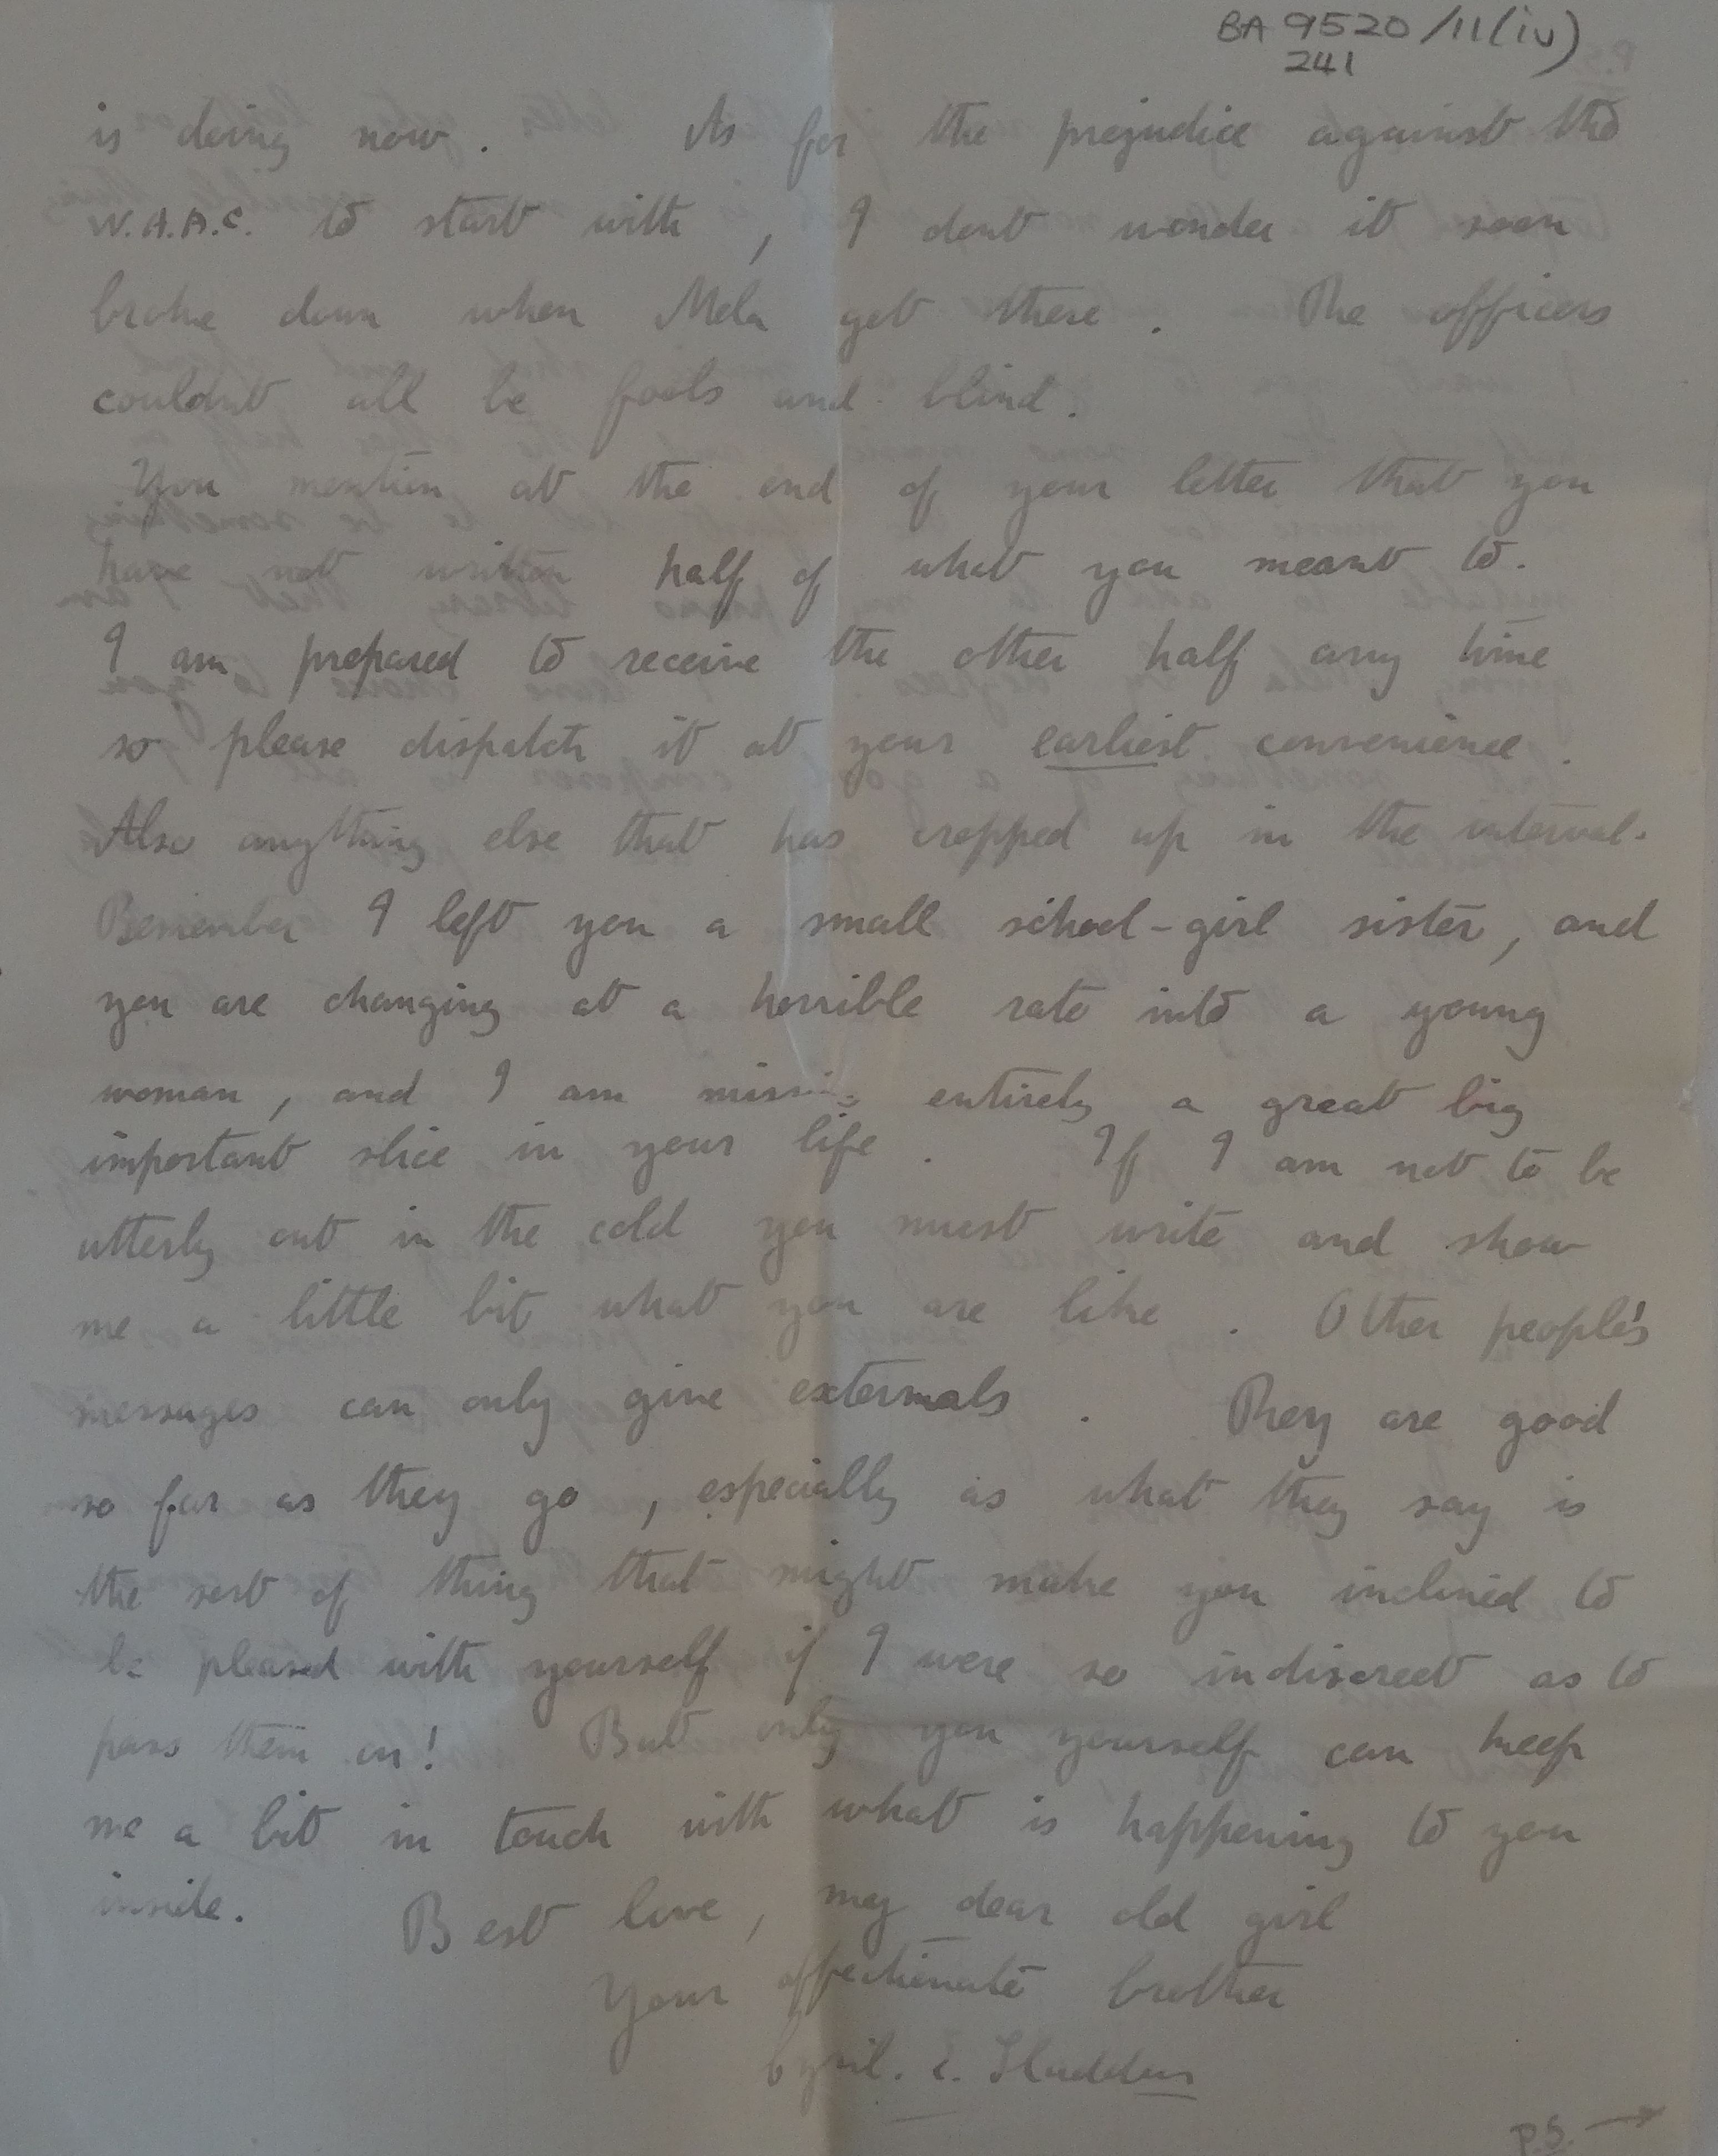 BA 9520/11(iv)
241
is doing now. As for the prejudice against the
W.A.A.C. to start with, I dont wonder it soon
broke down when Mela got there. The officers
couldnt all be fools and blind.
You mention at the end of your letter that you
have not written half of what you meant to.
I am prepared to receive the other half any time
so please dispatch it at your earliest convenience.
Also anything else that has cropped up in the interval.
Remember I left you a small school-girl sister, and
you are changing at a horrible rate into a young
woman, and I am missing entirely a great big
important slice in your life. If I am not to be
utterly out in the cold you must write and show
me a little bit what you are like. Other people's
messages can only give externals. They are good
so far as they go, especially as what they say is
the sort of thing that might make you inclined to
be pleased with yourself if I were so indiscreet as to
pass them on! But only you yourself can keep
me a bit in touch with what is happening to you
inside. Best love, my dear old girl
Your affectionate brother
Cyril. E. Sladden
P.S. →